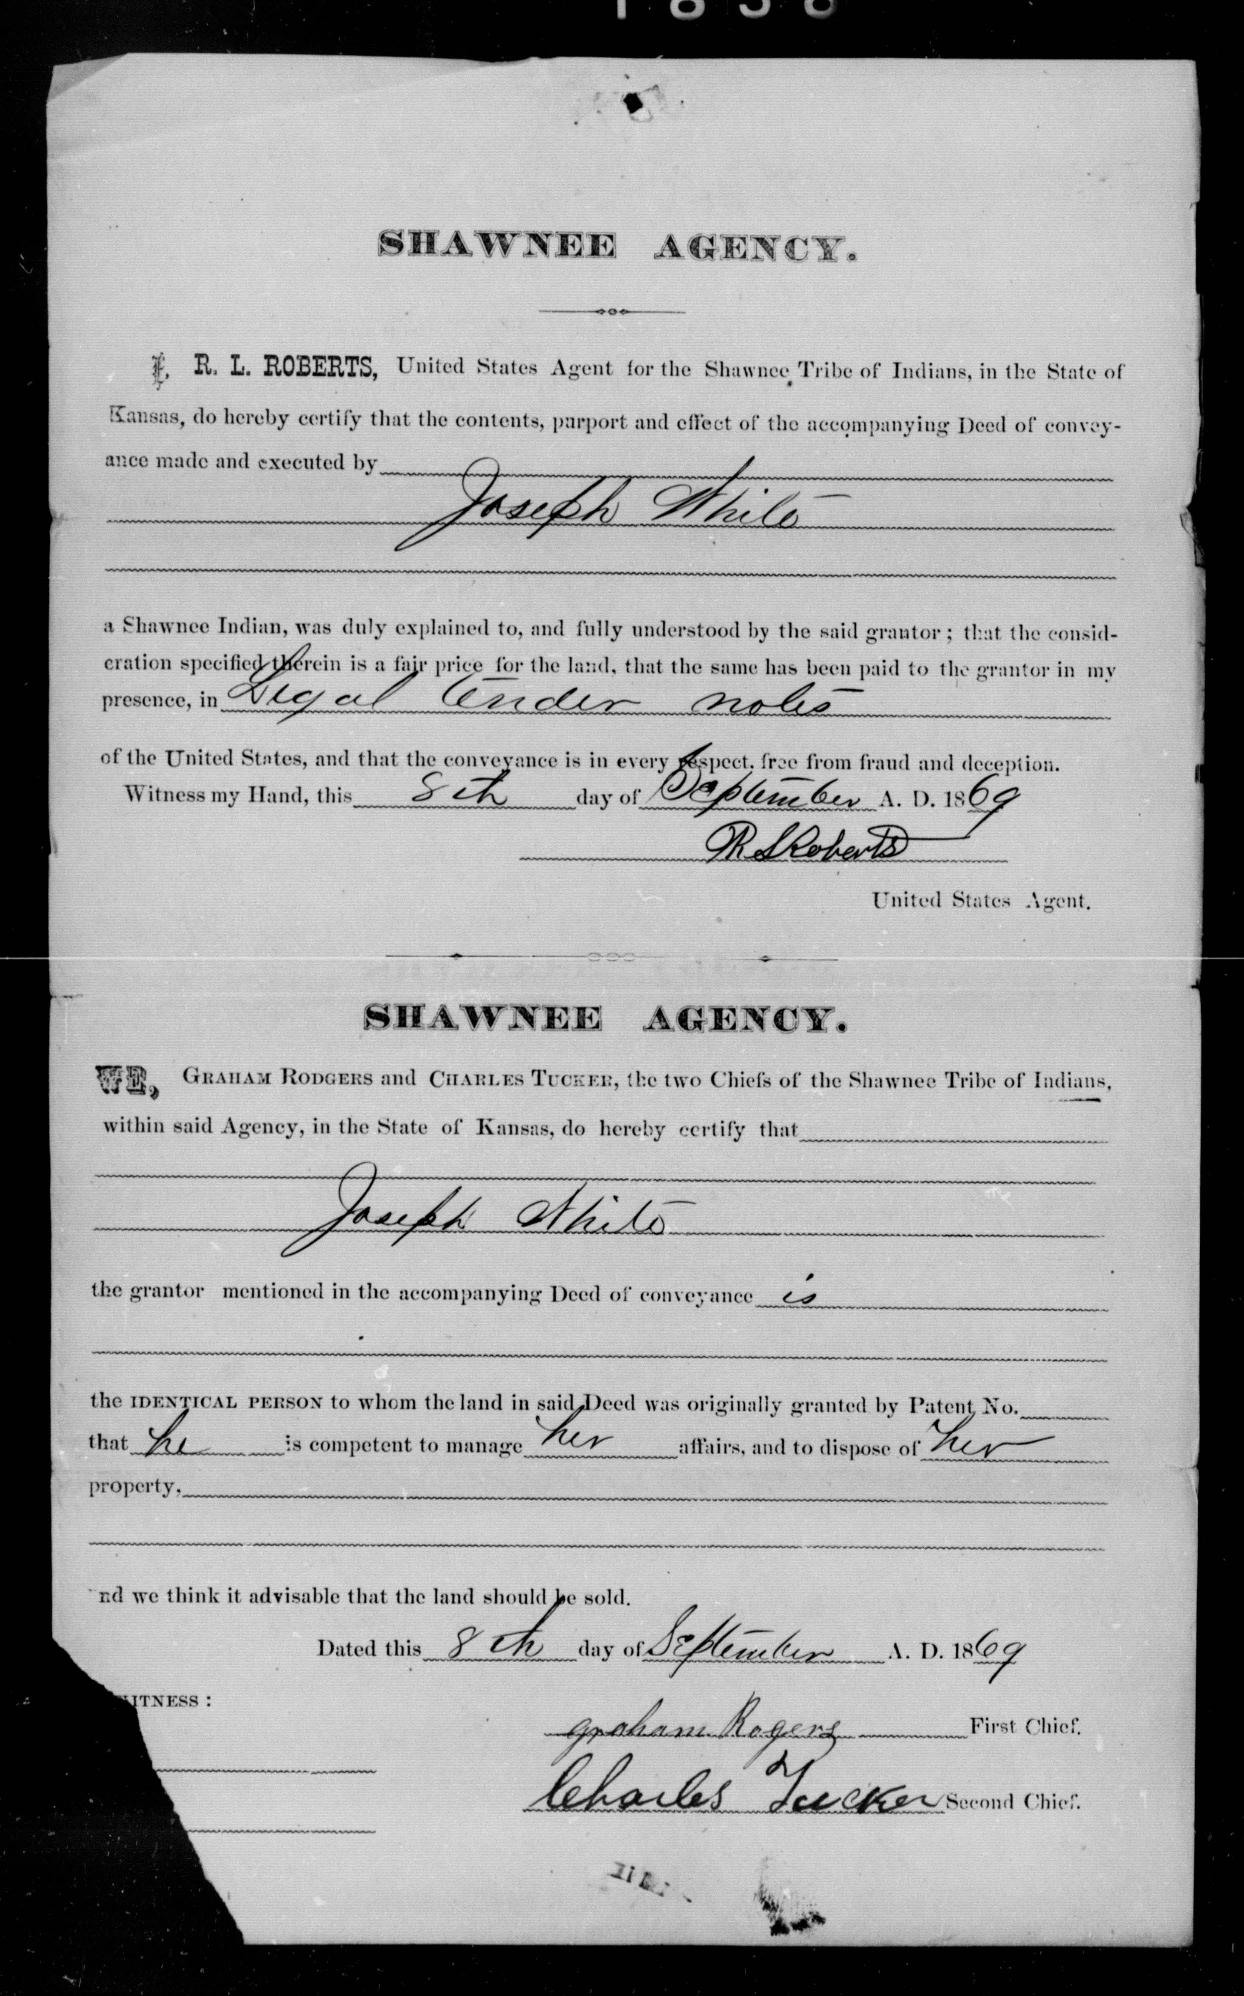 1838
SHAWNEE AGENCY.
I, R. L. ROBERTS, United States Agent for the Shawnee Tribe of Indians, in the State of
Kansas, do hereby certify that the contents, purport and effect of the accompanying Deed of convey-
ance made and executed by
Joseph White
a Shawnee Indian, was duly explained to, and fully understood by the said grantor; that the consid-
eration specified therein is a fair price for the land, that the same has been paid to the grantor in my
presence, in Legal tender notes
of the United States, and that the conveyance is in every respect, free from fraud and deception.
Witness my Hand, this 8th day of September A. D. 1869
R L Roberts
United States Agent.
SHAWNEE AGENCY.
WE, GRAHAM RODGERS and CHARLES TUCKER, the two Chiefs of the Shawnee Tribe of Indians,
within said Agency, in the State of Kansas, do hereby certify that
Joseph White
the grantor mentioned in the accompanying Deed of conveyance is
the IDENTICAL PERSON to whom the land in said Deed was originally granted by Patent No.
that he is competent to manage her affairs, and to dispose of her
property,
nd we think it advisable that the land should be sold.
Dated this 8th day of September A. D. 1869
ITNESS:
graham Rogers First Chief.
Charles Tucker Second Chief.